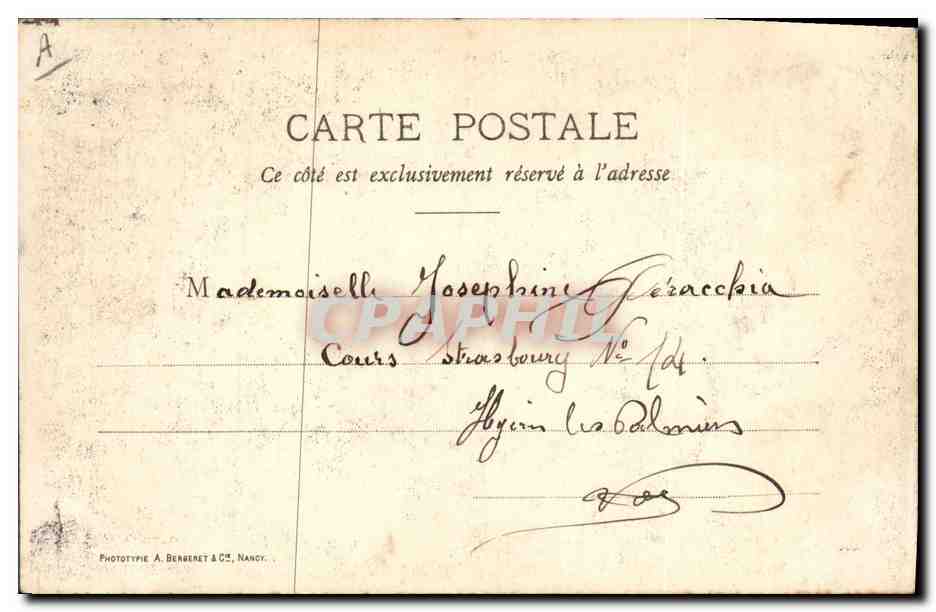 A
CARTE POSTALE
Ce côté est exclusivement réservé à l'adresse
Mademoiselle Josephine Géracchia
CPAPHIL
Cours Strasbourg N° 14.
Hyères les Palmiers
Var
PHOTOTYPIE A. BERGERET & Cie, NANCY.